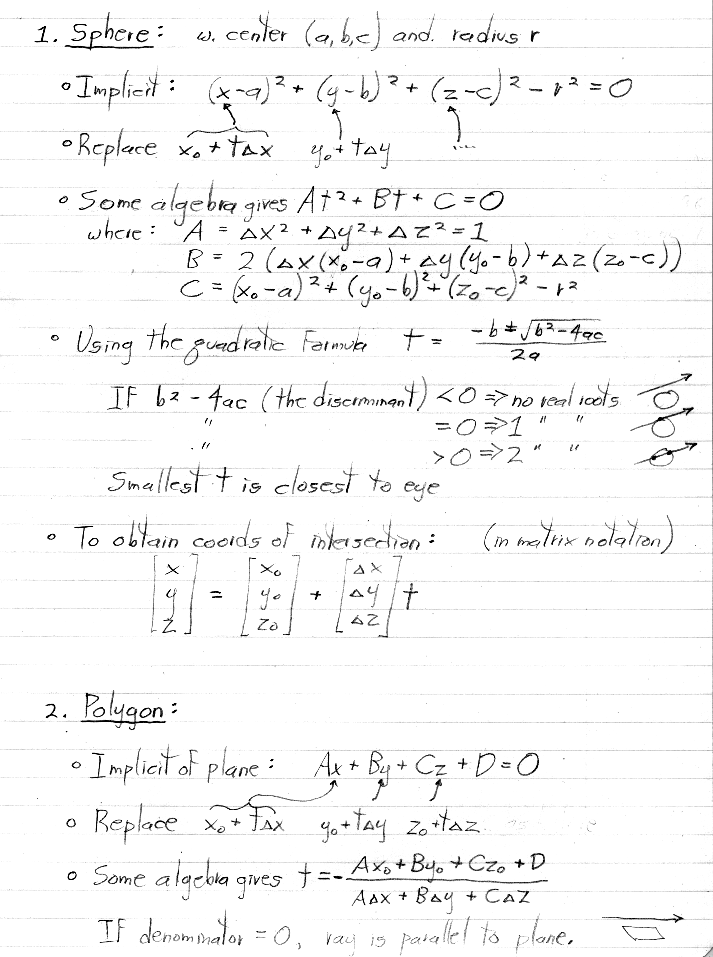 1. Sphere: w. center (a,b,c) and. radius r
∘ Implicit: (x-a)² + (y-b)² + (z-c)² - r² = 0
∘ Replace x₀ + t∆x y₀ + t∆y ....
∘ Some algebra gives At² + Bt + C = 0
where: A = ∆x² + ∆y² + ∆z² = 1
B = 2 (∆x(x₀-a) + ∆y(y₀-b) + ∆z(z₀-c))
C = (x₀-a)² + (y₀-b)² + (z₀-c)² - r²
∘ Using the quadratic Formula t = (-b ± √(b²-4ac)) / 2a
If b² - 4ac (the discriminant) < 0 ⇒ no real roots
" = 0 ⇒ 1 " "
" > 0 ⇒ 2 " "
Smallest t is closest to eye
∘ To obtain coords of intersection: (in matrix notation)
[x] = [x₀] + [∆x] t
[y] [y₀] [∆y]
[z] [z₀] [∆z]
2. Polygon:
∘ Implicit of plane: Ax + By + Cz + D = 0
∘ Replace x₀ + t∆x y₀ + t∆y z₀ + t∆z
∘ Some algebra gives t = - (Ax₀ + By₀ + Cz₀ + D) / (A∆x + B∆y + C∆z)
If denominator = 0, ray is parallel to plane.